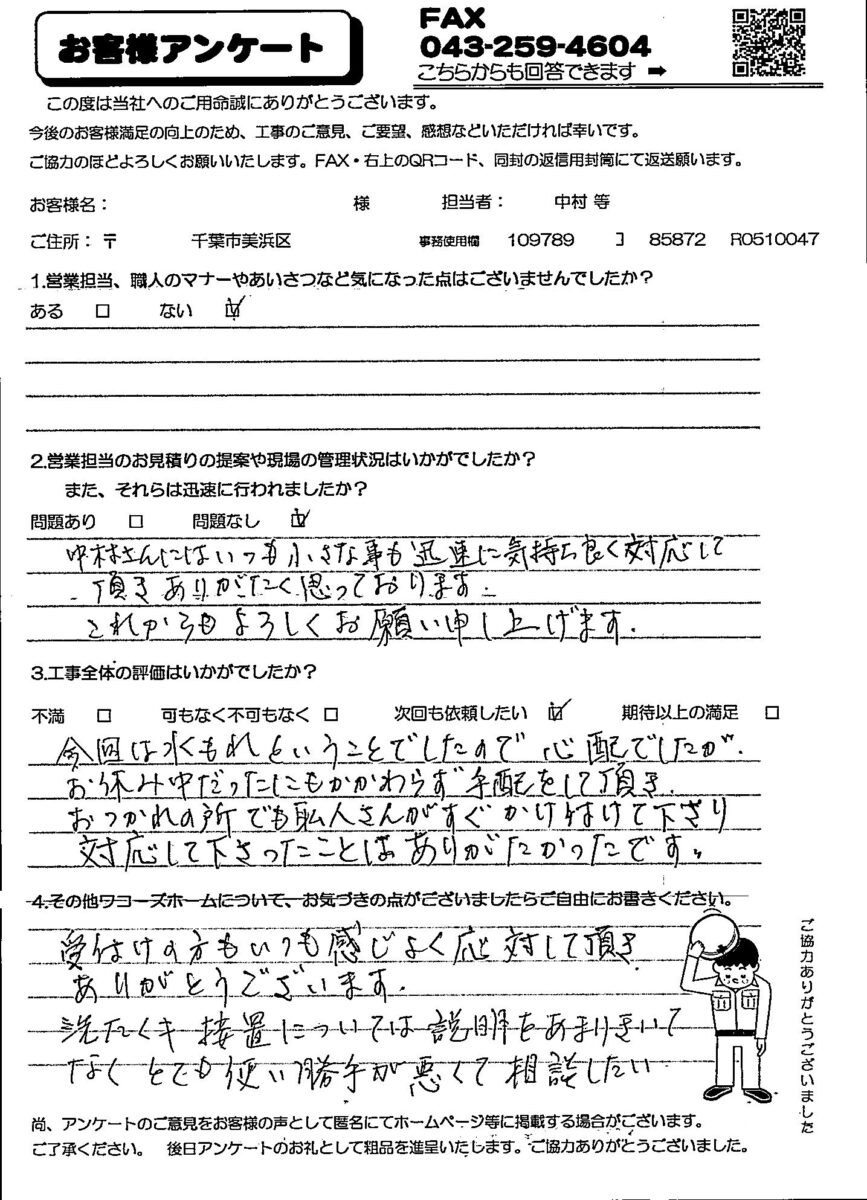 お客様アンケート
FAX
043-259-4604
こちらからも回答できます ➡
この度は当社へのご用命誠にありがとうございます。
今後のお客様満足の向上のため、工事のご意見、ご要望、感想などいただければ幸いです。
ご協力のほどよろしくお願いいたします。FAX・右上のQRコード、同封の返信用封筒にて返送願います。
お客様名： 様 担当者： 中村 等
ご住所：〒 千葉市美浜区 事務使用欄 109789 コ 85872 R0510047
1.営業担当、職人のマナーやあいさつなど気になった点はございませんでしたか？
ある □ ない ☑
2.営業担当のお見積りの提案や現場の管理状況はいかがでしたか？
また、それらは迅速に行われましたか？
問題あり □ 問題なし ☑
中村さんにはいつも小さな事も迅速に気持ち良く対応して
頂きありがたく思っております。
これからもよろしくお願い申し上げます.
3.工事全体の評価はいかがでしたか？
不満 □ 可もなく不可もなく □ 次回も依頼したい ☑ 期待以上の満足 □
今回は水もれということでしたので心配でしたが.
お休み中だったにもかかわらず手配をして頂き.
おつかれの所でも職人さんがすぐかけ付けて下さり
対応して下さったことはありがたかったです。
4.その他ワコーズホームについて、お気づきの点がございましたらご自由にお書きください。
受付けの方もいつも感じよく応対して頂き
ありがとうございます.
洗たくキ接置については説明をあまりきいて
なくとても使い勝手が悪くて相談したい
ご協力ありがとうございました
尚、アンケートのご意見をお客様の声として匿名にてホームページ等に掲載する場合がございます。
ご了承ください。 後日アンケートのお礼として粗品を進呈いたします。ご協力ありがとうございました。